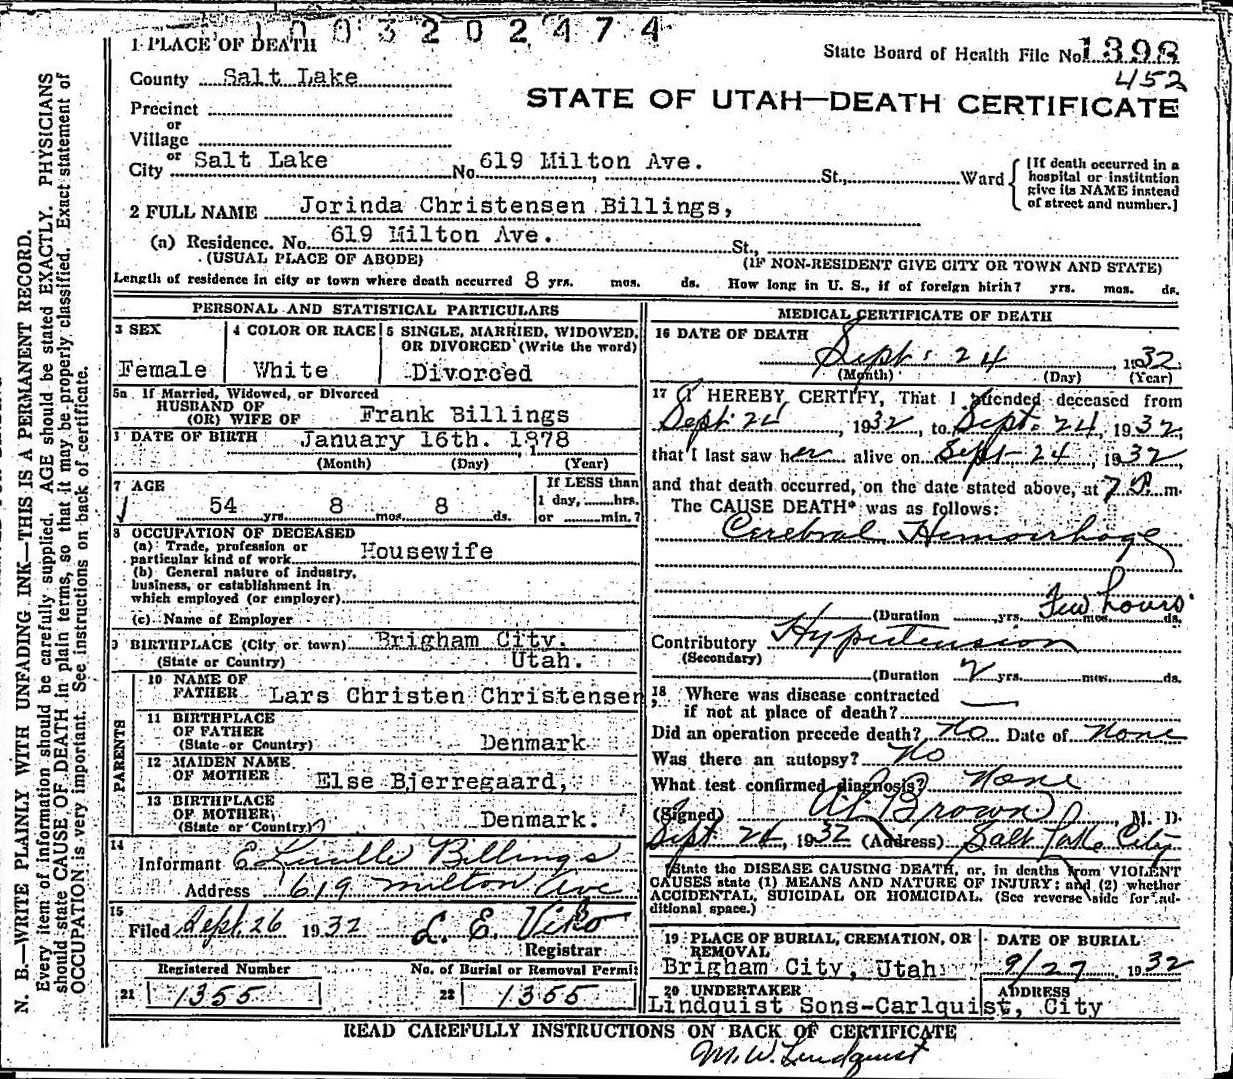 1003202474
1 PLACE OF DEATH
State Board of Health File No. 1398
452
County Salt Lake
STATE OF UTAH—DEATH CERTIFICATE
Precinct
or
Village
or
City Salt Lake No. 619 Milton Ave. St., Ward
[If death occurred in a hospital or institution give its NAME instead of street and number.]
2 FULL NAME Jorinda Christensen Billings,
(a) Residence. No. 619 Milton Ave. St.,
(USUAL PLACE OF ABODE) (IF NON-RESIDENT GIVE CITY OR TOWN AND STATE)
Length of residence in city or town where death occurred 8 yrs. mos. ds. How long in U. S., if of foreign birth? yrs. mos. ds.
PERSONAL AND STATISTICAL PARTICULARS
3 SEX
Female
4 COLOR OR RACE
White
5 SINGLE, MARRIED, WIDOWED,
OR DIVORCED (Write the word)
Divorced
5a If Married, Widowed, or Divorced
HUSBAND OF
(OR) WIFE OF Frank Billings
DATE OF BIRTH January 16th. 1878
(Month) (Day) (Year)
7 AGE
54 yrs. 8 mos. 8 ds.
If LESS than
1 day, hrs.
or min.?
8 OCCUPATION OF DECEASED
(a) Trade, profession or
particular kind of work Housewife
(b) General nature of industry,
business, or establishment in
which employed (or employer)
(c) Name of Employer
9 BIRTHPLACE (City or town) Brigham City.
(State or Country) Utah.
PARENTS
10 NAME OF
FATHER Lars Christen Christensen
11 BIRTHPLACE
OF FATHER
(State or Country) Denmark
12 MAIDEN NAME
OF MOTHER Else Bjerregaard,
13 BIRTHPLACE
OF MOTHER,
(State or Country) Denmark.
14
Informant E Lucille Billings
Address 619 Milton Ave
15
Filed Sept. 26 1932 L. E. Viko
Registrar
Registered Number No. of Burial or Removal Permit
21 1355 22 1355
MEDICAL CERTIFICATE OF DEATH
16 DATE OF DEATH
Sept. 24, 1932
(Month) (Day) (Year)
17 I HEREBY CERTIFY, That I attended deceased from
Sept. 24, 1932, to Sept. 24, 1932,
that I last saw her alive on Sept 24, 1932
and that death occurred, on the date stated above, at 7 P. m.
The CAUSE DEATH* was as follows:
Cerebral Hemorrhage
(Duration yrs. Few hours mos. ds.
Contributory Hypertension
(Secondary)
(Duration 2 yrs. mos. ds.
18 Where was disease contracted
if not at place of death? —
Did an operation precede death? No Date of None
Was there an autopsy? No
What test confirmed diagnosis? None
(Signed) AL Brown, M. D.
Sept. 24, 1932 (Address) Salt Lake City
*State the DISEASE CAUSING DEATH, or, in deaths from VIOLENT
CAUSES state (1) MEANS AND NATURE OF INJURY: and (2) whether
ACCIDENTAL, SUICIDAL OR HOMICIDAL. (See reverse side for ad-
ditional space.)
19 PLACE OF BURIAL, CREMATION, OR
REMOVAL
Brigham City, Utah
DATE OF BURIAL
9/27, 1932
20 UNDERTAKER ADDRESS
Lindquist Sons-Carlquist, City
READ CAREFULLY INSTRUCTIONS ON BACK OF CERTIFICATE
M. W. Lindquist
N. B.—WRITE PLAINLY WITH UNFADING INK—THIS IS A PERMANENT RECORD.
Every item of information should be carefully supplied. AGE should be stated EXACTLY. PHYSICIANS
should state CAUSE OF DEATH in plain terms, so that it may be properly classified. Exact statement of
OCCUPATION is very important. See instructions on back of certificate.